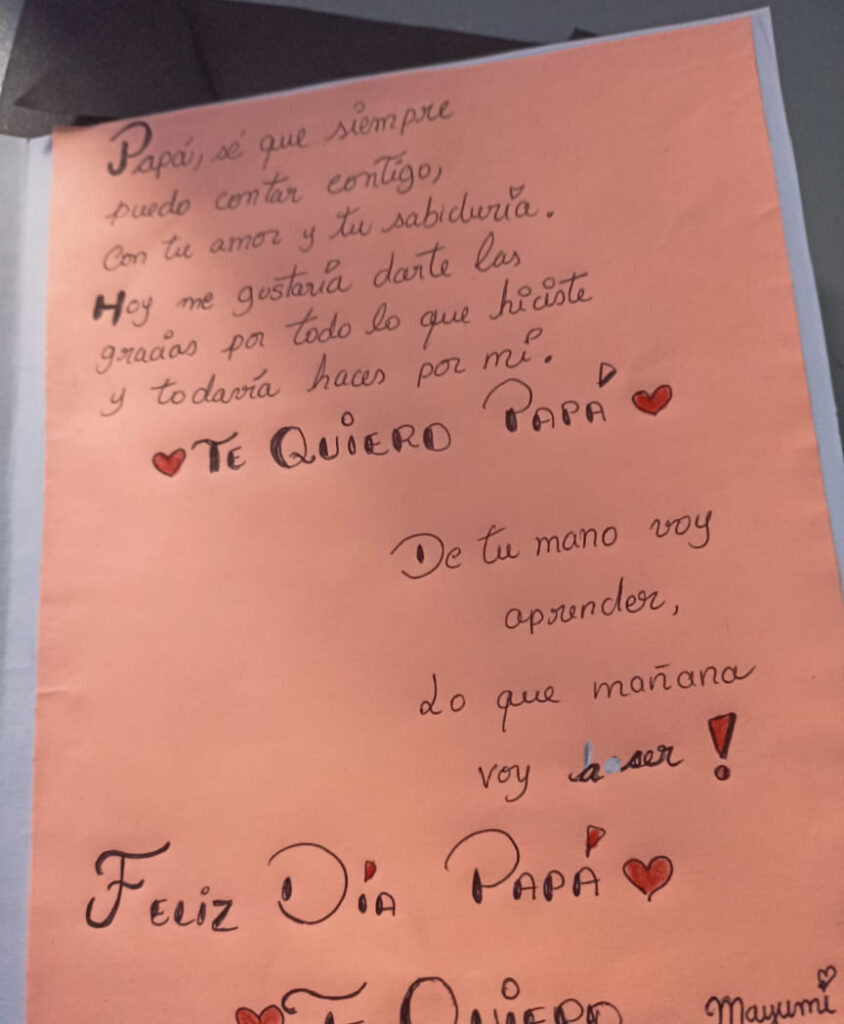 Papá, sé que siempre
puedo contar contigo,
con tu amor y tu sabiduría.
Hoy me gustaría darte las
gracias por todo lo que hiciste
y todavía haces por mí.
♥TE QUIERO PAPÁ♥
De tu mano voy
aprender,
Lo que mañana
voy a ser!
FELIZ DÍA PAPÁ♥
♥TE QUIERO
Mayumi